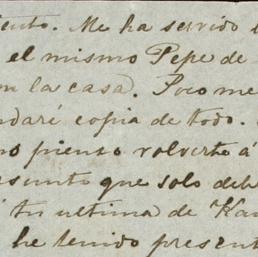 iento. Me ha servido
el mismo Pepe de
n la casa. Poco me
ndaré copia de todo.
no pienso volverte á
esunto que solo deb
tu ultima de Ha
he tenido present